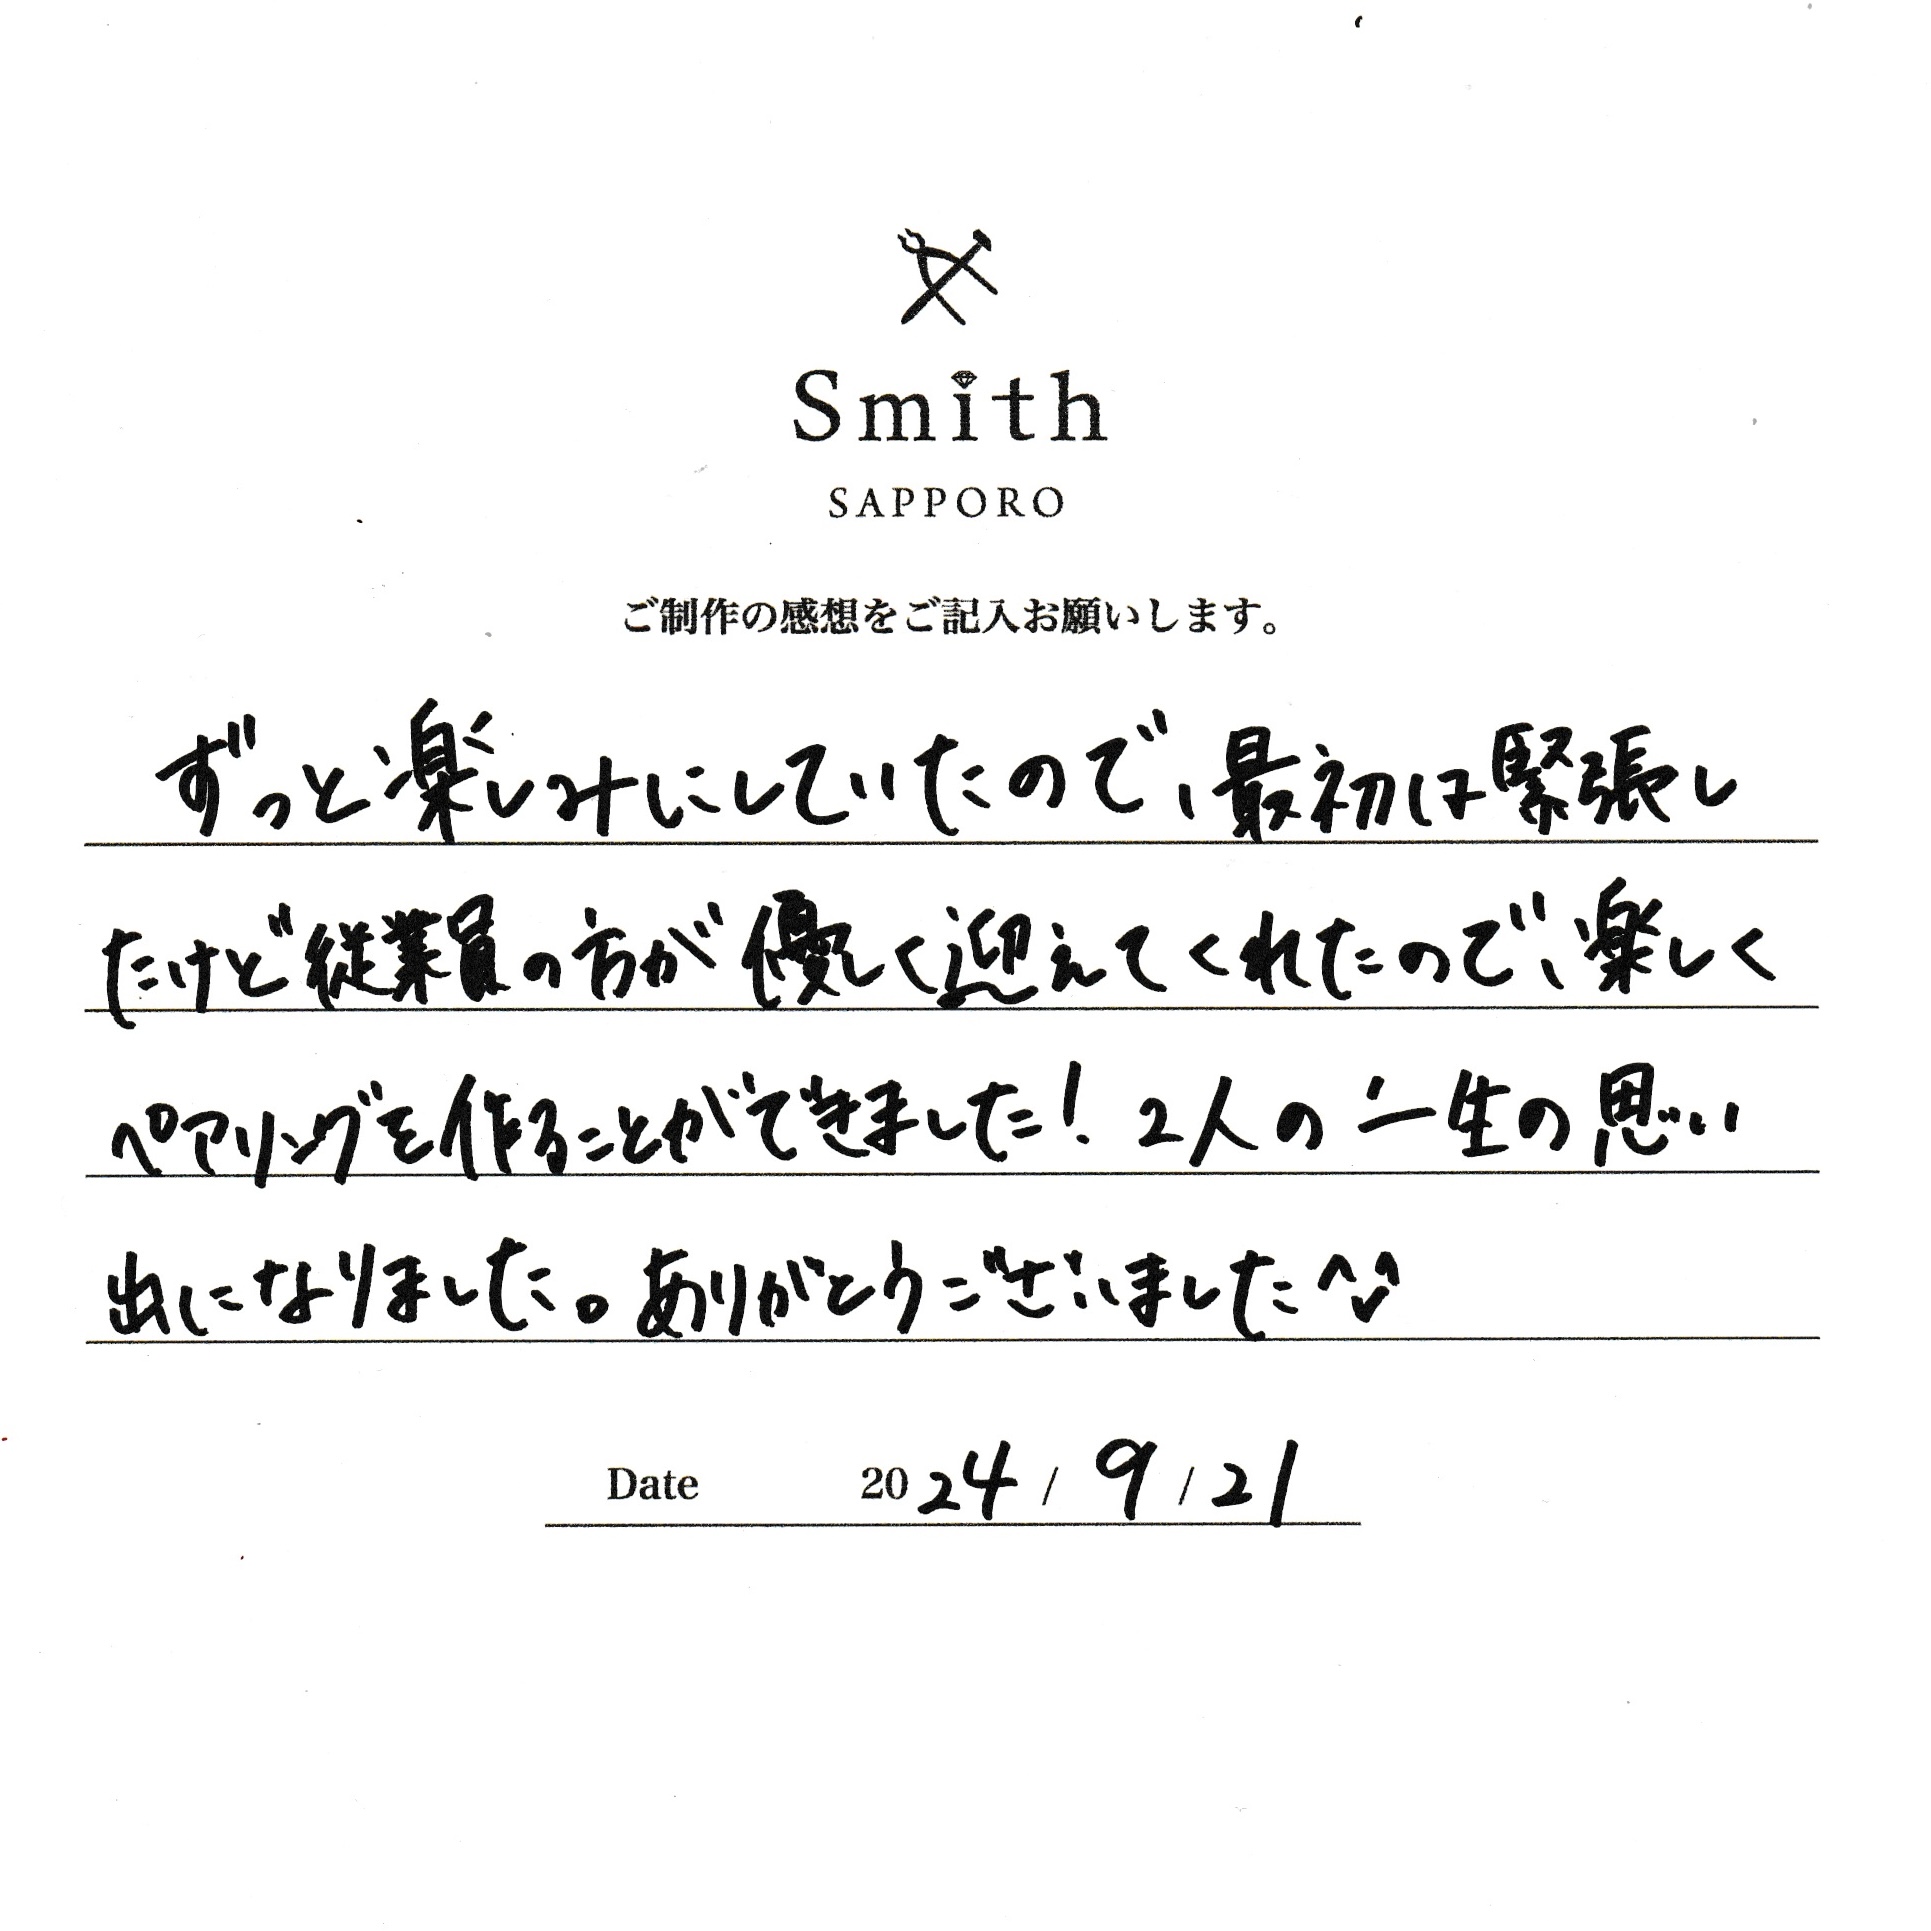 Smith
SAPPORO
ご制作の感想をご記入お願いします。
ずっと楽しみにしていたので、最初は緊張し
たけど従業員の方が優しく迎えてくれたので、楽しく
ペアリングを作ることができました！2人の一生の思い
出になりました。ありがとうございました^^
Date 2024/9/21